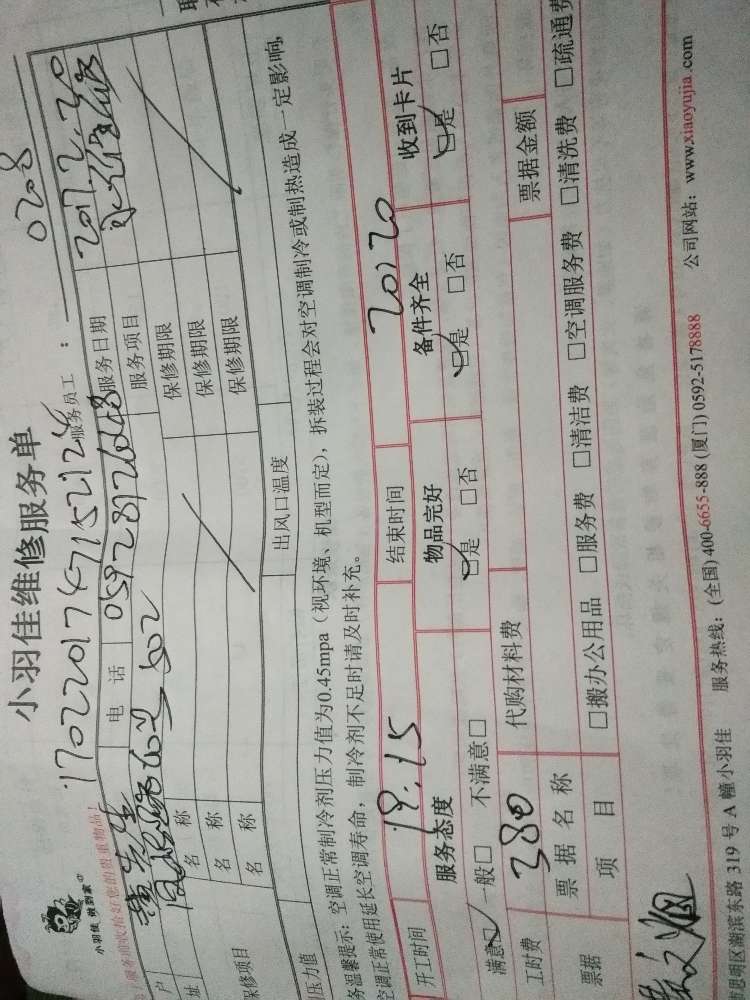 小羽佳维修服务单
小羽佳 做到家
服务前收拾好您的贵重物品!
服务员工: 0208
户 黄先生 电 话 服务日期 2017.2.20
址 602 服务项目
修项目 名 称 保修期限
名 称 保修期限
名 称 保修期限
压力值 出风口温度
务温馨提示: 空调正常制冷剂压力值为0.45mpa (视环境、机型而定), 拆装过程会对空调制冷或制热造成一定影响,
空调正常使用延长空调寿命, 制冷剂不足时请及时补充。
开工时间 19.15 结束时间 20:20
服务态度 物品完好 备件齐全 收到卡片
满意☑ 一般□ 不满意□ ☑是 □否 ☑是 □否 ☑是 □否
工时费 380 代购材料费 票据金额
票据 票 据 名 称
项 目 □搬办公用品 □服务费 □清洁费 □空调服务费 □清洗费 □疏通费
思明区湖滨东路 319 号 A 幢小羽佳 服务热线: (全国) 400-6655-888 (厦门) 0592-5178888 公司网站: www.xiaoyujia.com